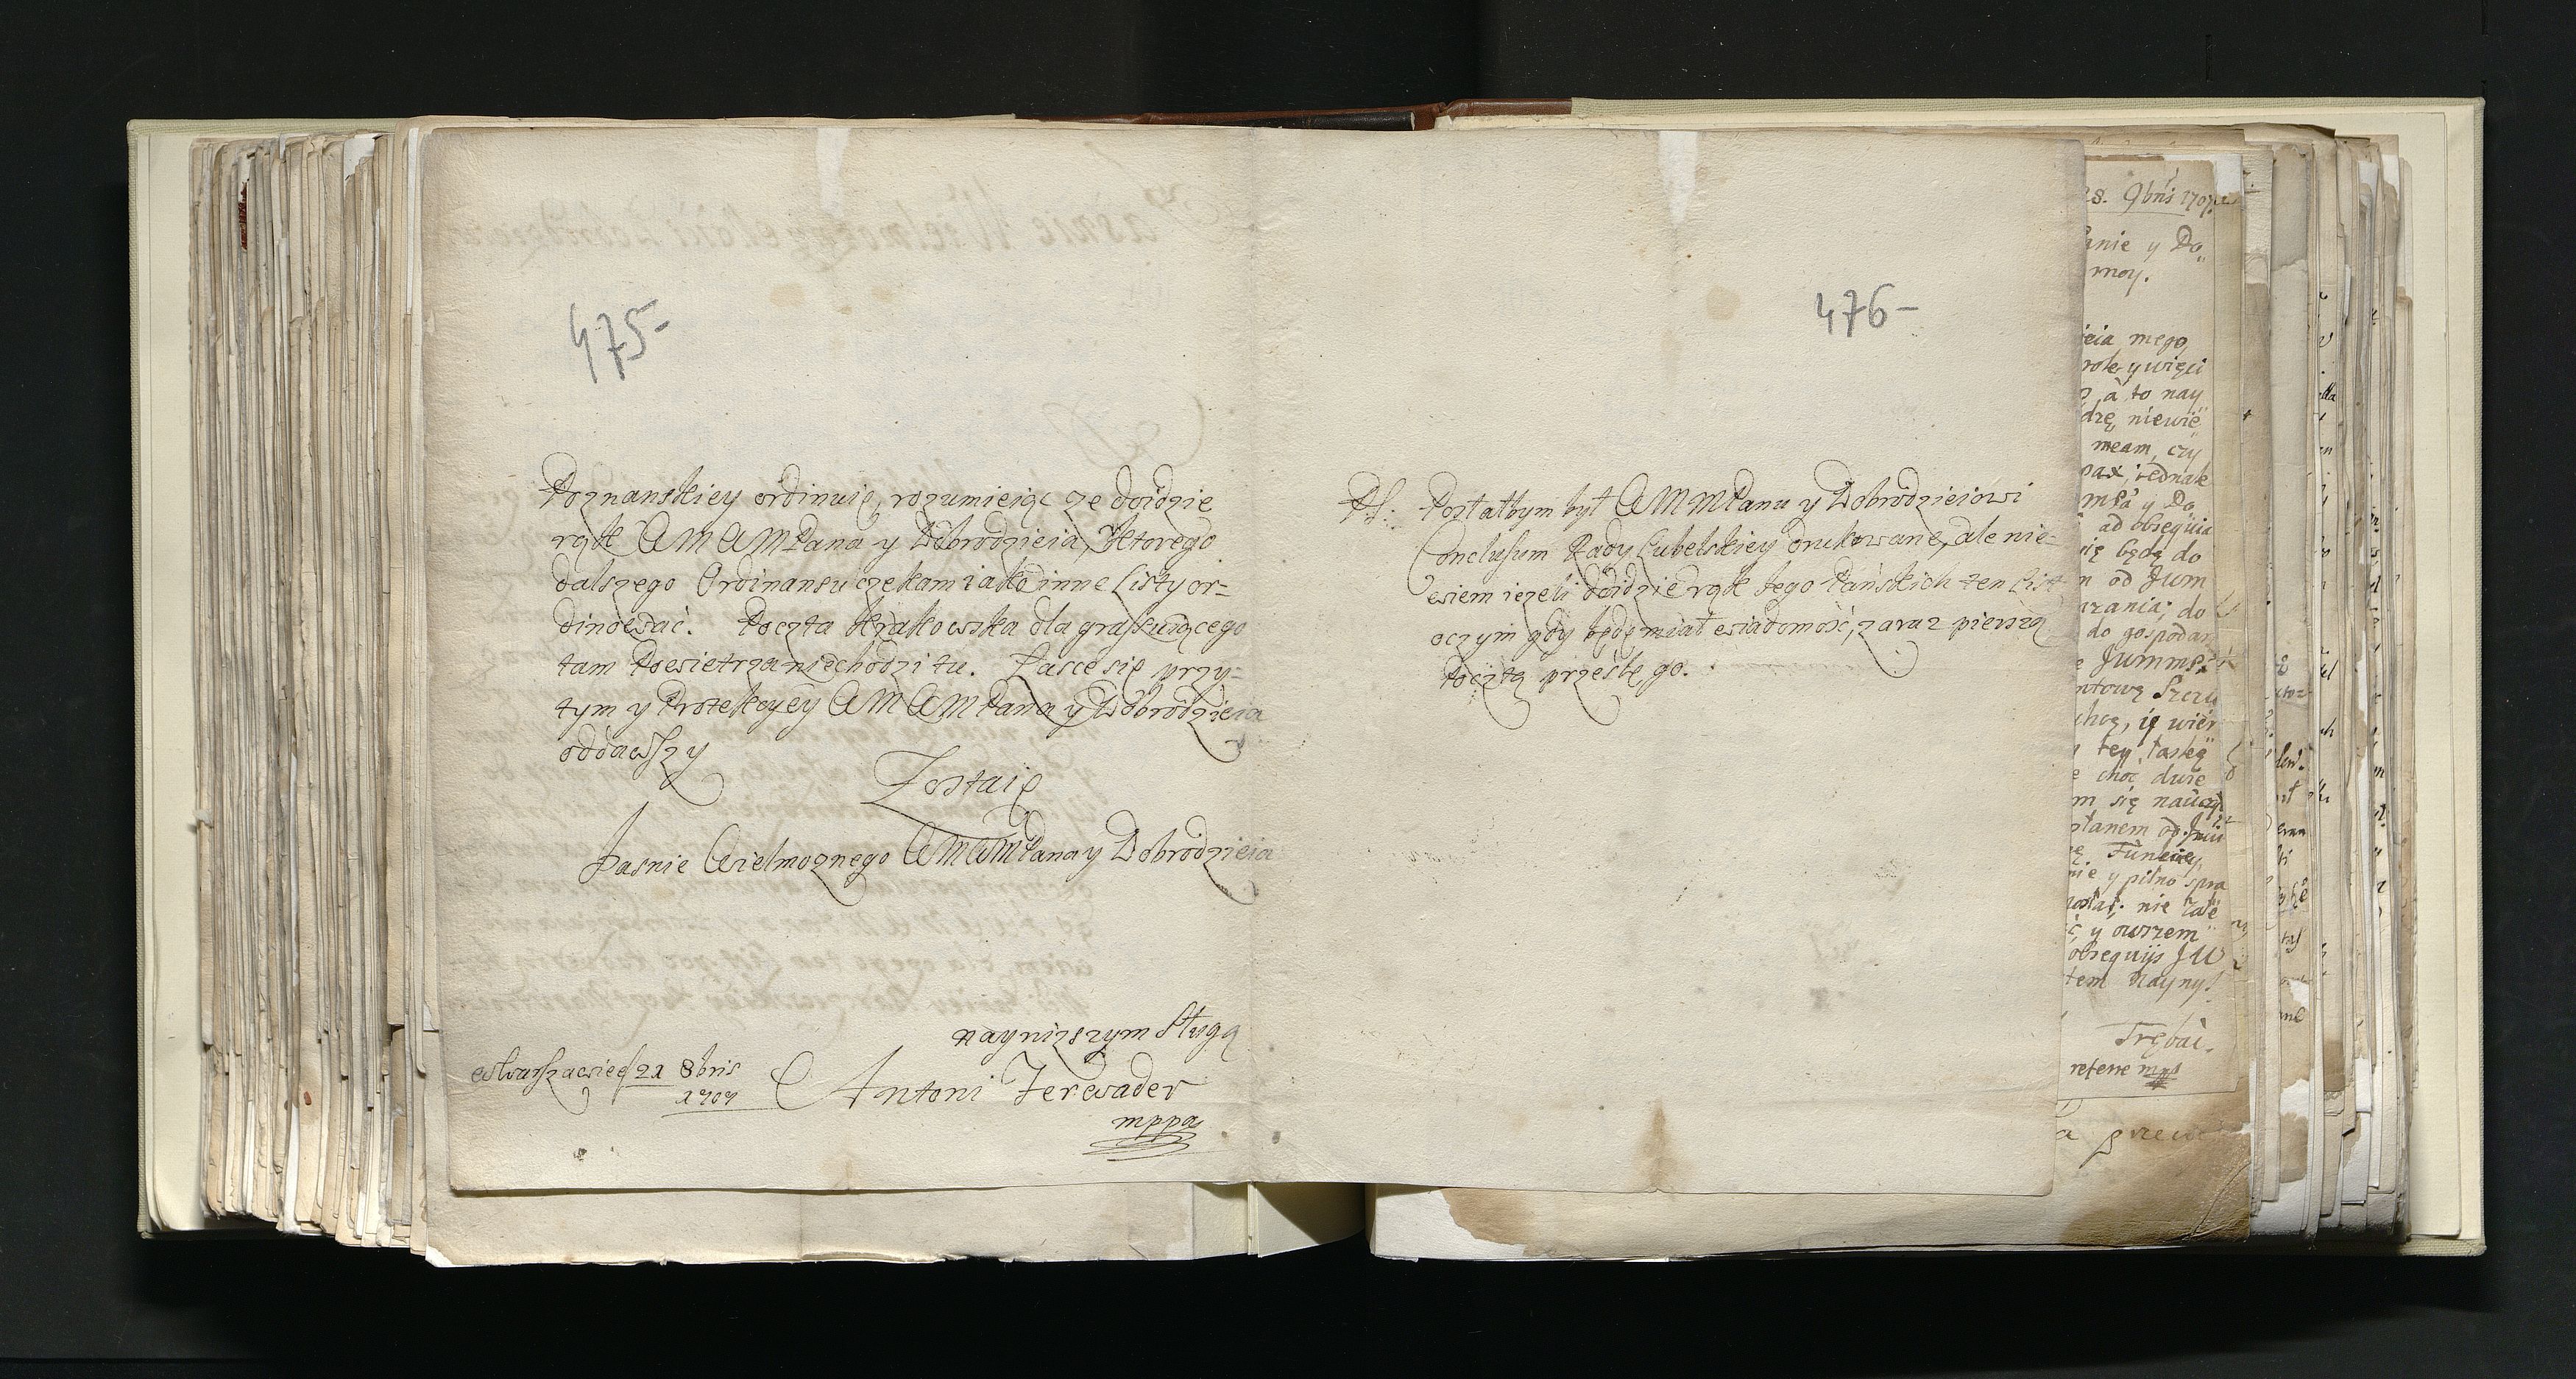 475-
Poznanskiey ordinuię, rozumieiąc ze doidzie
rąk WM WMPana y Dobrodzieia, Ktorego
dalszego Ordinansu czekam iako inne Listy or-
dinować. Poczta Krakowska dla grassuiącego
tam Powietrza niechodzi tu. Łasce się przy-
tym y Protekcyey WM WMPana y Dobrodzieia
oddawszy
Zostaię
Jasnie Wielmoznego WM WMPana y Dobrodzieia
naynizszym sługą
w Warszawie d 21 8bris
1707
Antoni Zerwader
mppa
476-
PS: Posłałbym był WMMPanu y Dobrodzieiowi
Conclusum Rady Lubelskiey drukowane, ale nie-
wiem iezeli doidzie rąk Jego Pańskich ten List
oczym gdy będę miał wiadomość, zaraz pierszą
Pocztą prześlę go.
28. 9bris 1707
Panie y Do
moy.
mego
a to nay
niewie
meam, czy
iednak
y Do
ad obsequia
się będę do
od Jum
do
do gospodar
się
Functiey
y pilno spra
nie
y owszem
obsequijs JW
tem Nayny
Trębac.
referre mpp